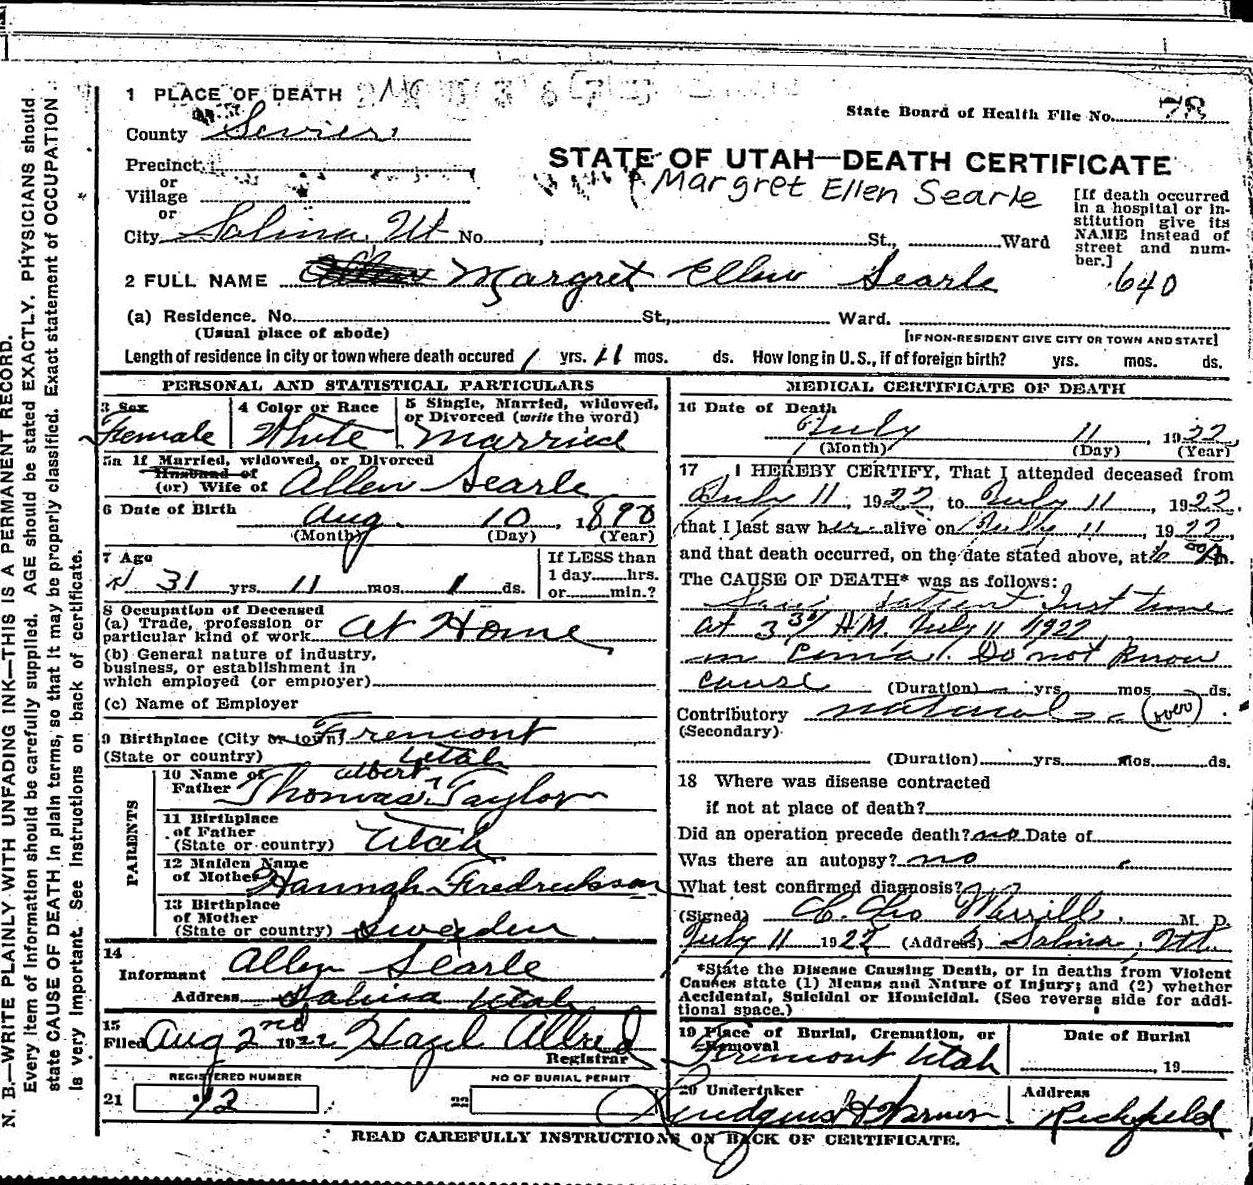 1 PLACE OF DEATH
State Board of Health File No. 78
County Sevier
STATE OF UTAH—DEATH CERTIFICATE
Precinct
or
Margret Ellen Searle
Village
or
[If death occurred in a hospital or institution give its NAME instead of street and number.]
City Salina, Ut No. , St., Ward
640
2 FULL NAME Margret Ellen Searle
(a) Residence. No. St., Ward.
(Usual place of abode)
[IF NON-RESIDENT GIVE CITY OR TOWN AND STATE]
Length of residence in city or town where death occured 1 yrs. 11 mos. ds. How long in U.S., if of foreign birth? yrs. mos. ds.
PERSONAL AND STATISTICAL PARTICULARS
3 Sex
Female
4 Color or Race
White
5 Single, Married, widowed,
or Divorced (write the word)
Married
5a If Married, widowed, or Divorced
Husband of
(or) Wife of Allen Searle
6 Date of Birth Aug. 10, 1890
(Month) (Day) (Year)
7 Age
31 yrs. 11 mos. 1 ds.
If LESS than
1 day hrs.
or min.?
8 Occupation of Deceased
(a) Trade, profession or
particular kind of work At Home
(b) General nature of industry,
business, or establishment in
which employed (or employer)
(c) Name of Employer
9 Birthplace (City or town) Fremont
(State or country) Utah
PARENTS
10 Name of
Father Thomas Albert Taylor
11 Birthplace
of Father
(State or country) Utah
12 Maiden Name
of Mother Hannah Fredrickson
13 Birthplace
of Mother
(State or country) Sweden
14
Informant Allen Searle
Address Salina Utah
15
Filed Aug 2nd 1922 Hazel Allred
Registrar
REGISTERED NUMBER
21 12
NO OF BURIAL PERMIT
22
MEDICAL CERTIFICATE OF DEATH
16 Date of Death
July 11, 1922
(Month) (Day) (Year)
17 I HEREBY CERTIFY, That I attended deceased from
July 11, 1922 to July 11, 1922,
that I last saw her alive on July 11, 1922,
and that death occurred, on the date stated above, at m.
The CAUSE OF DEATH* was as follows:
Saw patient first time
at 3 30 A.M. July 11 1922
in coma. Do not know
cause (Duration) yrs. mos. ds.
Contributory natural (over)
(Secondary)
(Duration) yrs. mos. ds.
18 Where was disease contracted
if not at place of death?
Did an operation precede death? no Date of
Was there an autopsy? no
What test confirmed diagnosis?
(Signed) Merrill, M. D.
July 11 1922 (Address) Salina, Ut.
*State the Disease Causing Death, or in deaths from Violent
Causes state (1) Means and Nature of Injury; and (2) whether
Accidental, Suicidal or Homicidal. (See reverse side for additional space.)
19 Place of Burial, Cremation, or
Removal
Fremont Utah
Date of Burial
, 19
20 Undertaker
Address
Richfield
READ CAREFULLY INSTRUCTIONS ON BACK OF CERTIFICATE.
N. B.—WRITE PLAINLY WITH UNFADING INK—THIS IS A PERMANENT RECORD.
Every item of information should be carefully supplied. AGE should be stated EXACTLY. PHYSICIANS should
state CAUSE OF DEATH in plain terms, so that it may be properly classified. Exact statement of OCCUPATION
is very important. See instructions on back of certificate.